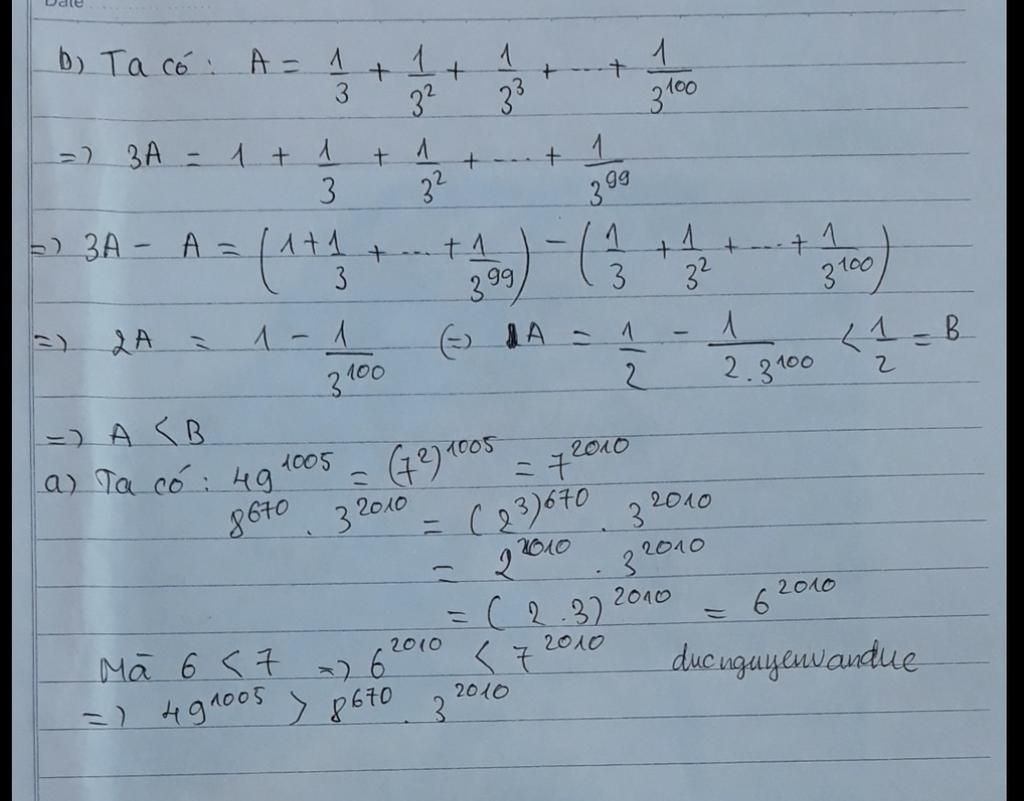 Date
b) Ta có: A = 1/3 + 1/3² + 1/3³ + ... + 1/3¹⁰⁰
=) 3A = 1 + 1/3 + 1/3² + ... + 1/3⁹⁹
=) 3A - A = (1 + 1/3 + ... + 1/3⁹⁹) - (1/3 + 1/3² + ... + 1/3¹⁰⁰)
=) 2A = 1 - 1/3¹⁰⁰ (=) A = 1/2 - 1/2.3¹⁰⁰ < 1/2 = B
=) A < B
a) Ta có: 49¹⁰⁰⁵ = (7²)¹⁰⁰⁵ = 7²⁰¹⁰
8⁶⁷⁰ . 3²⁰¹⁰ = (2³)⁶⁷⁰ . 3²⁰¹⁰
= 2²⁰¹⁰ . 3²⁰¹⁰
= (2.3)²⁰¹⁰ = 6²⁰¹⁰
Mã 6 < 7 =) 6²⁰¹⁰ < 7²⁰¹⁰ ducnguyenvandue
=) 49¹⁰⁰⁵ > 8⁶⁷⁰ . 3²⁰¹⁰